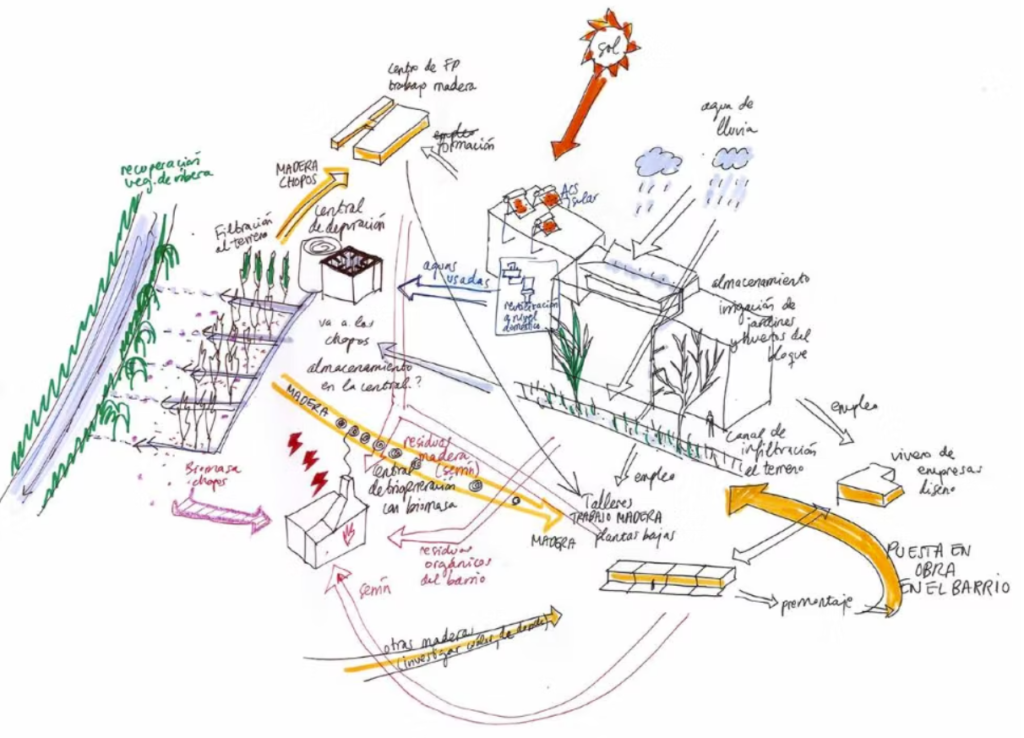 sol
centro de FP
trabajo madera
empleo
formación
agua de
lluvia
recuperación
veg. de ribera
MADERA
CHOPOS
ACS
solar
Filtración
al terreno
central
de depuración
aguas
usadas
reutilización
a nivel
doméstico
almacenamiento
irrigación de
jardines
y huertos del
bloque
va a los
chopos
almacenamiento
en la central?
MADERA
empleo
residuos
madera
(serrín)
canal de
infiltración
el terreno
Biomasa
chopos
central
de biogeneración
con biomasa
empleo
vivero de
empresas
diseño
Talleres
TRABAJO MADERA
plantas bajas
MADERA
residuos
orgánicos
del barrio
PUESTA EN
OBRA
EN EL BARRIO
serrín
premontaje
otras madera
(investigar